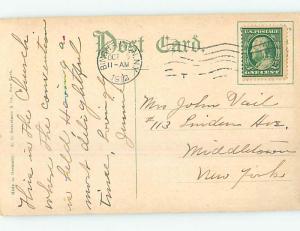 Post Card.
OCT
11-AM
U.S. POSTAGE
ONE CENT
This is the Church
where the convention
is held Having a
most delightful
time, Lovingly
Jennie
Mrs John Vail
#113 Linden Ave.
Middletown
New York
Made in Germany.